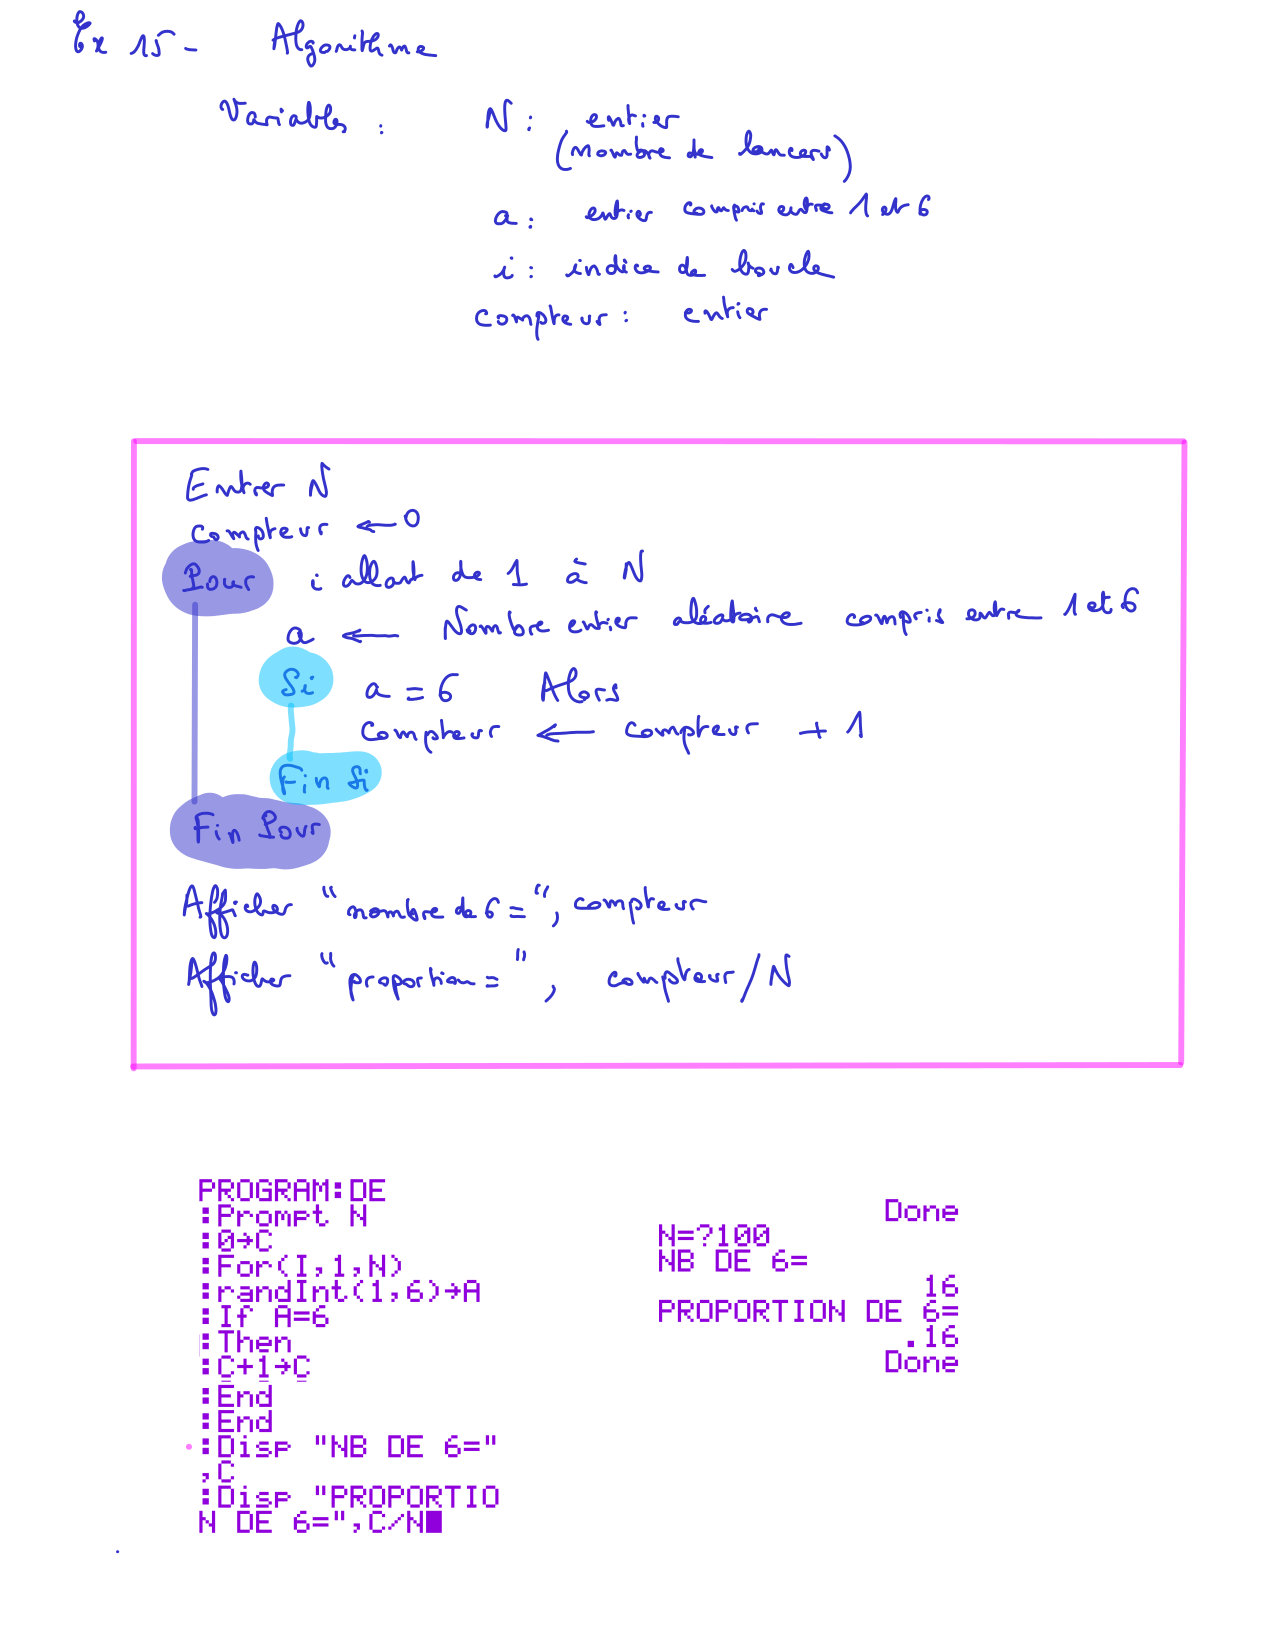 Ex 15 - Algorithme
Variables : N : entier
(nombre de lancers)
a : entier compris entre 1 et 6
i : indice de boucle
compteur : entier
Entrer N
compteur ← 0
Pour i allant de 1 à N
a ← Nombre entier aléatoire compris entre 1 et 6
Si a = 6 Alors
compteur ← compteur + 1
Fin Si
Fin Pour
Afficher "nombre de 6 = ", compteur
Afficher "proportion = ", compteur / N
PROGRAM:DE
:Prompt N
:0→C
:For(I,1,N)
:randInt(1,6)→A
:If A=6
:Then
:C+1→C
:End
:End
:Disp "NB DE 6="
,C
:Disp "PROPORTIO
N DE 6=",C/N
Done
N=?100
NB DE 6=
16
PROPORTION DE 6=
.16
Done